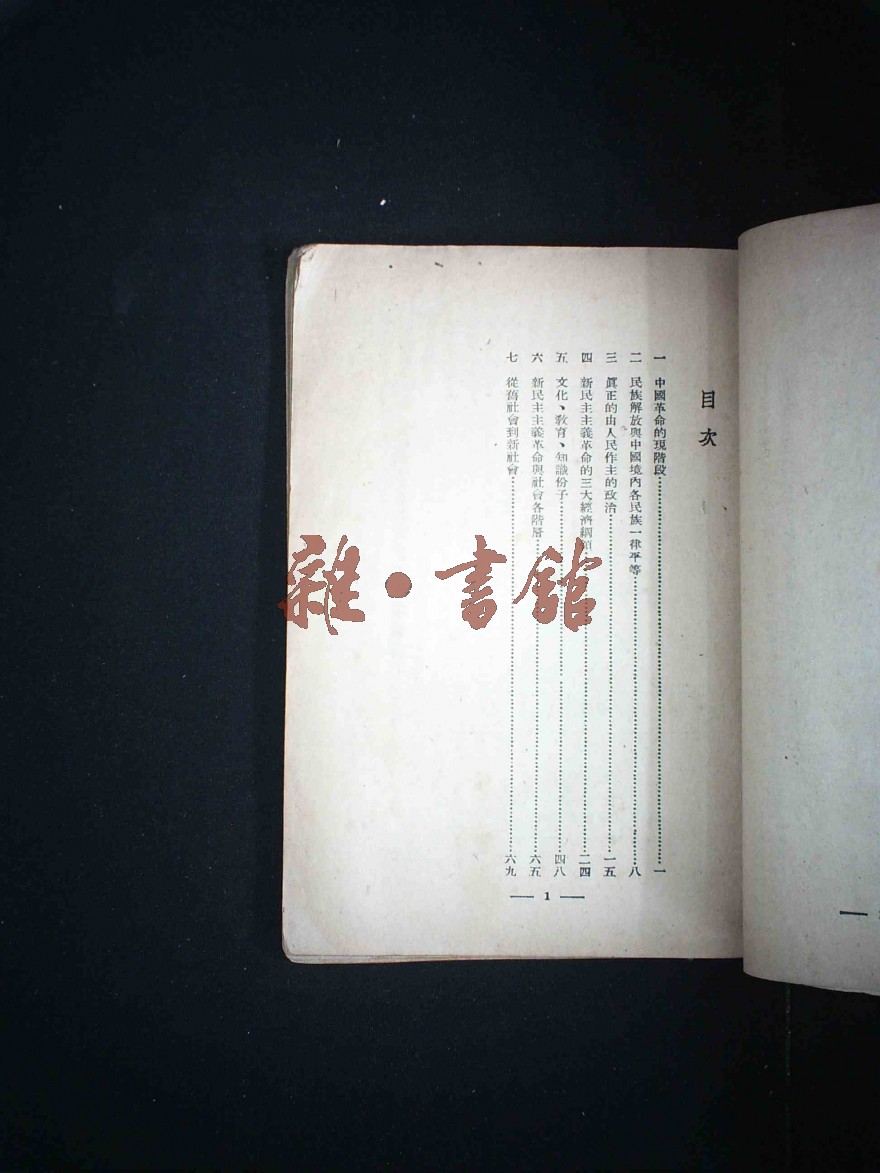 目次
一 中國革命的現階段……一
二 民族解放與中國境內各民族一律平等……八
三 眞正的由人民作主的政治……一五
四 新民主主義革命的三大經濟綱領……二四
五 文化、敎育、知識份子……四八
六 新民主主義革命與社會各階層……六五
七 從舊社會到新社會……六九
— 1 —
雜·書館